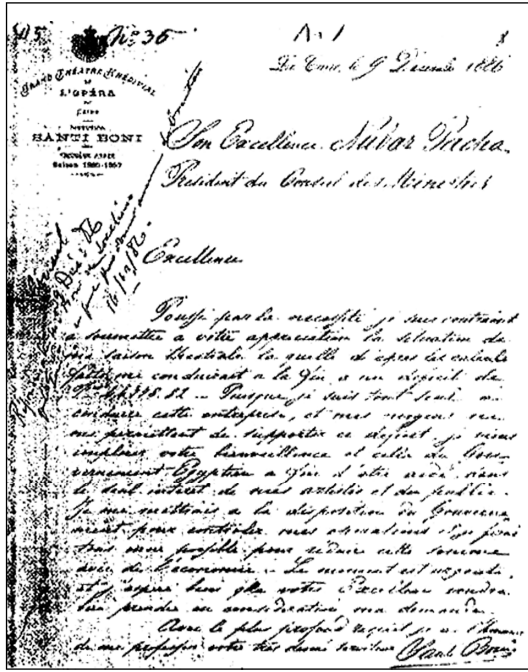 No 36
Du Caire, le 9 Décembre 1886
GRAND THÉATRE KHÉDIVIAL
DE
L'OPÉRA
DU
CAIRE
SANTI BONI
Saison 1886-1887
Son Excellence Nubar Pacha
Président du Conseil des Ministres
Excellence
16/12/86.
Poussé par la necessité je suis contraint
a soumettre a votre appreciation la situation de
ma saison théatrale la quelle d'apres les calculs
faits me conduirait a la fin a un deficit de
Puisque je suis tout seul a
conduire cette entreprise, et mes moyens ne
me permettant de supporter ce deficit je viens
implorer votre bienveillance et celle du Gouvernement
Egyptien a fin d'etre aidé dans
le seul interet de mes artistes et du public.
Je me mettrais a la disposition du Gouvernement
pour controler mes operations
possible pour reduire cette somme
avec de l'economie. Le moment est urgent
et j'espère bien que votre Excellence voudra
bien prendre en consideration ma demande.
Avec le plus profond respect je
de me professer votre tres devoué serviteur
Santi Boni